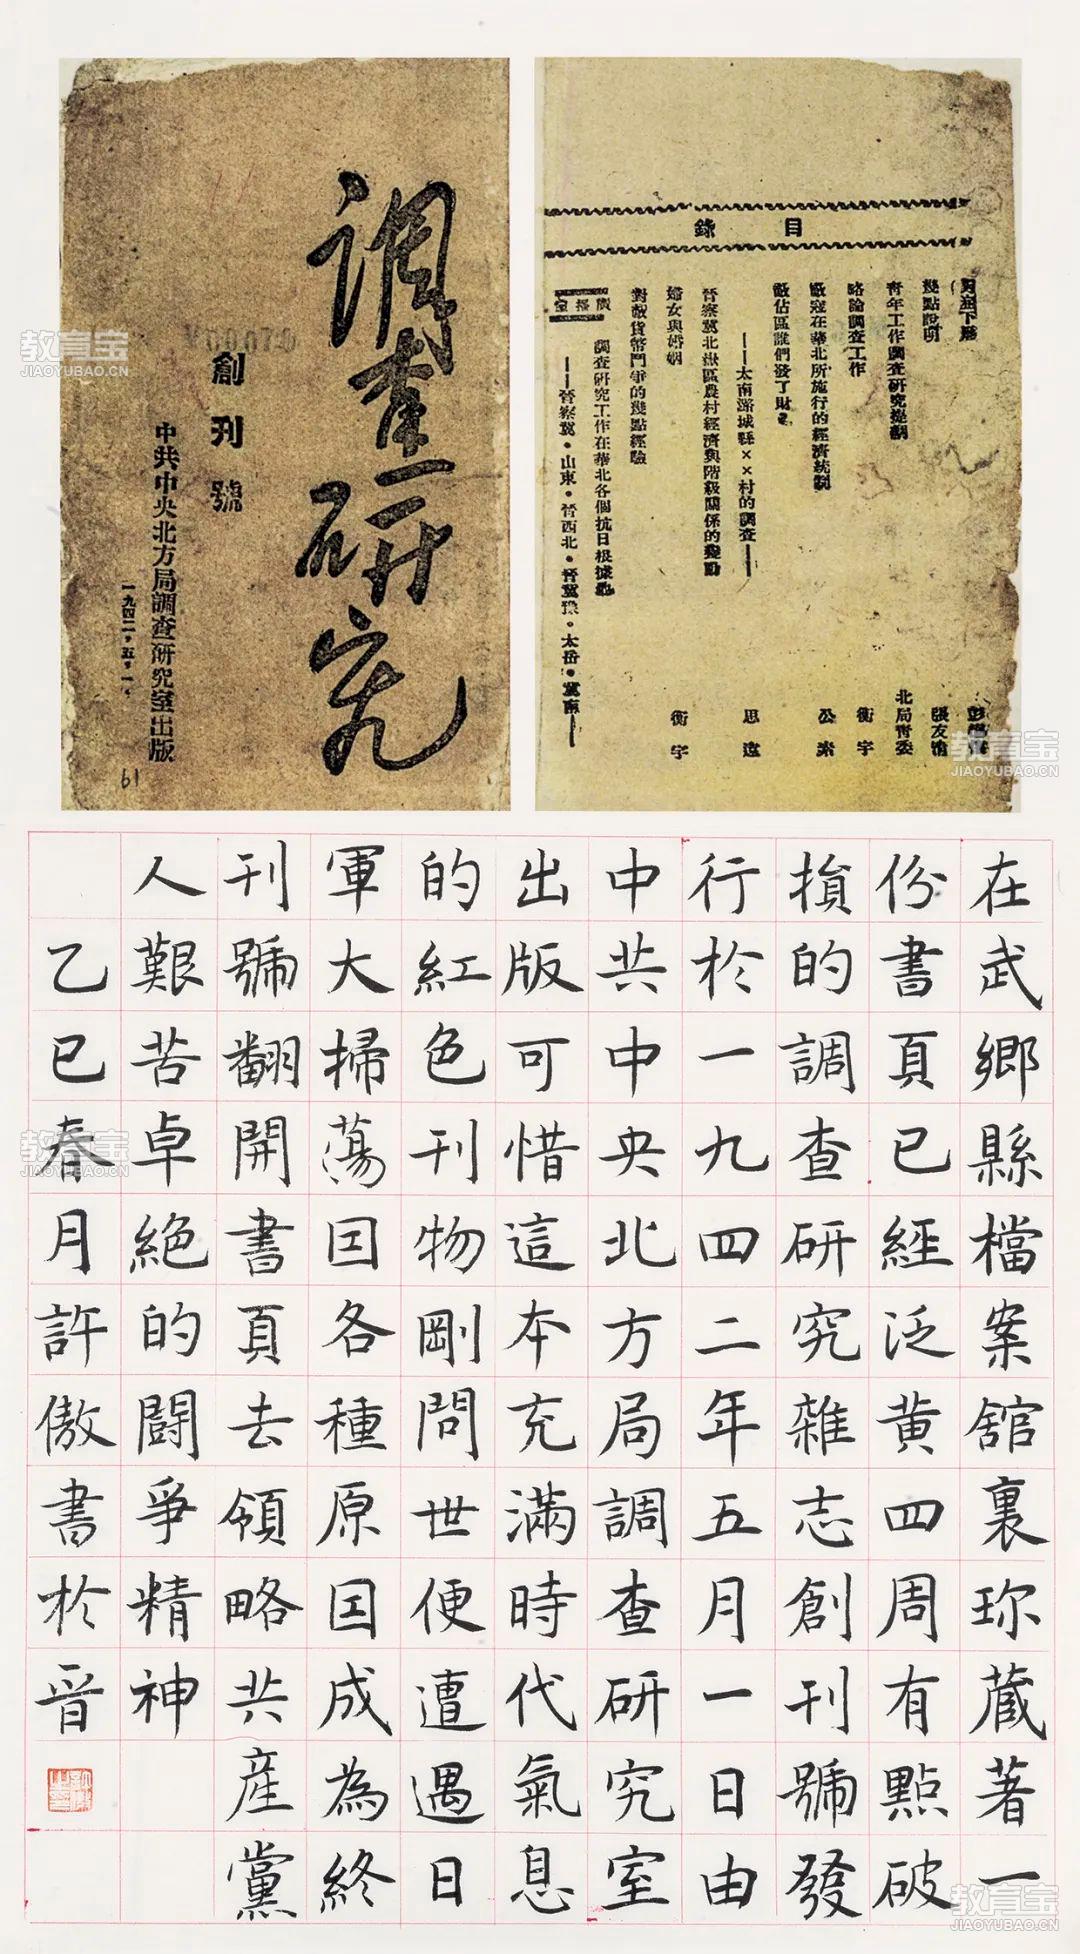 調查研究
創刊號
中共中央北方局調查研究室出版
一九四二·五·一·
61
目錄
幾點說明
張友清
青年工作調查研究提綱
北局青委
略論調查工作
衡宇
敵寇在華北所施行的經濟統制
公素
敵佔區誰們發了財
——太南潞城縣××村的調查——
思遠
晉察冀北嶽區農村經濟與階級關係的變動
婦女與婚姻
衡宇
對敵貨幣鬥爭的幾點經驗
調查研究工作在華北各個抗日根據地
——晉察冀·山東·晉西北·晉冀豫·太岳·冀南——
在武鄉縣檔案舘裏珎藏著一
份書頁已經泛黄四周有點破
損的調查研究雜志創刊號發
行於一九四二年五月一日由
中共中央北方局調查研究室
出版可惜這本充滿時代氣息
的紅色刊物剛問世便遭遇日
軍大掃蕩囙各種原囙成為終
刊號翻開書頁去領略共產黨
人艱苦卓絶的鬪爭精神
乙巳春月許傲書於晉
教育宝
JIAOYUBAO.CN
教育宝
JIAOYUBAO.CN
教育宝
JIAOYUBAO.CN
教育宝
JIAOYUBAO.CN